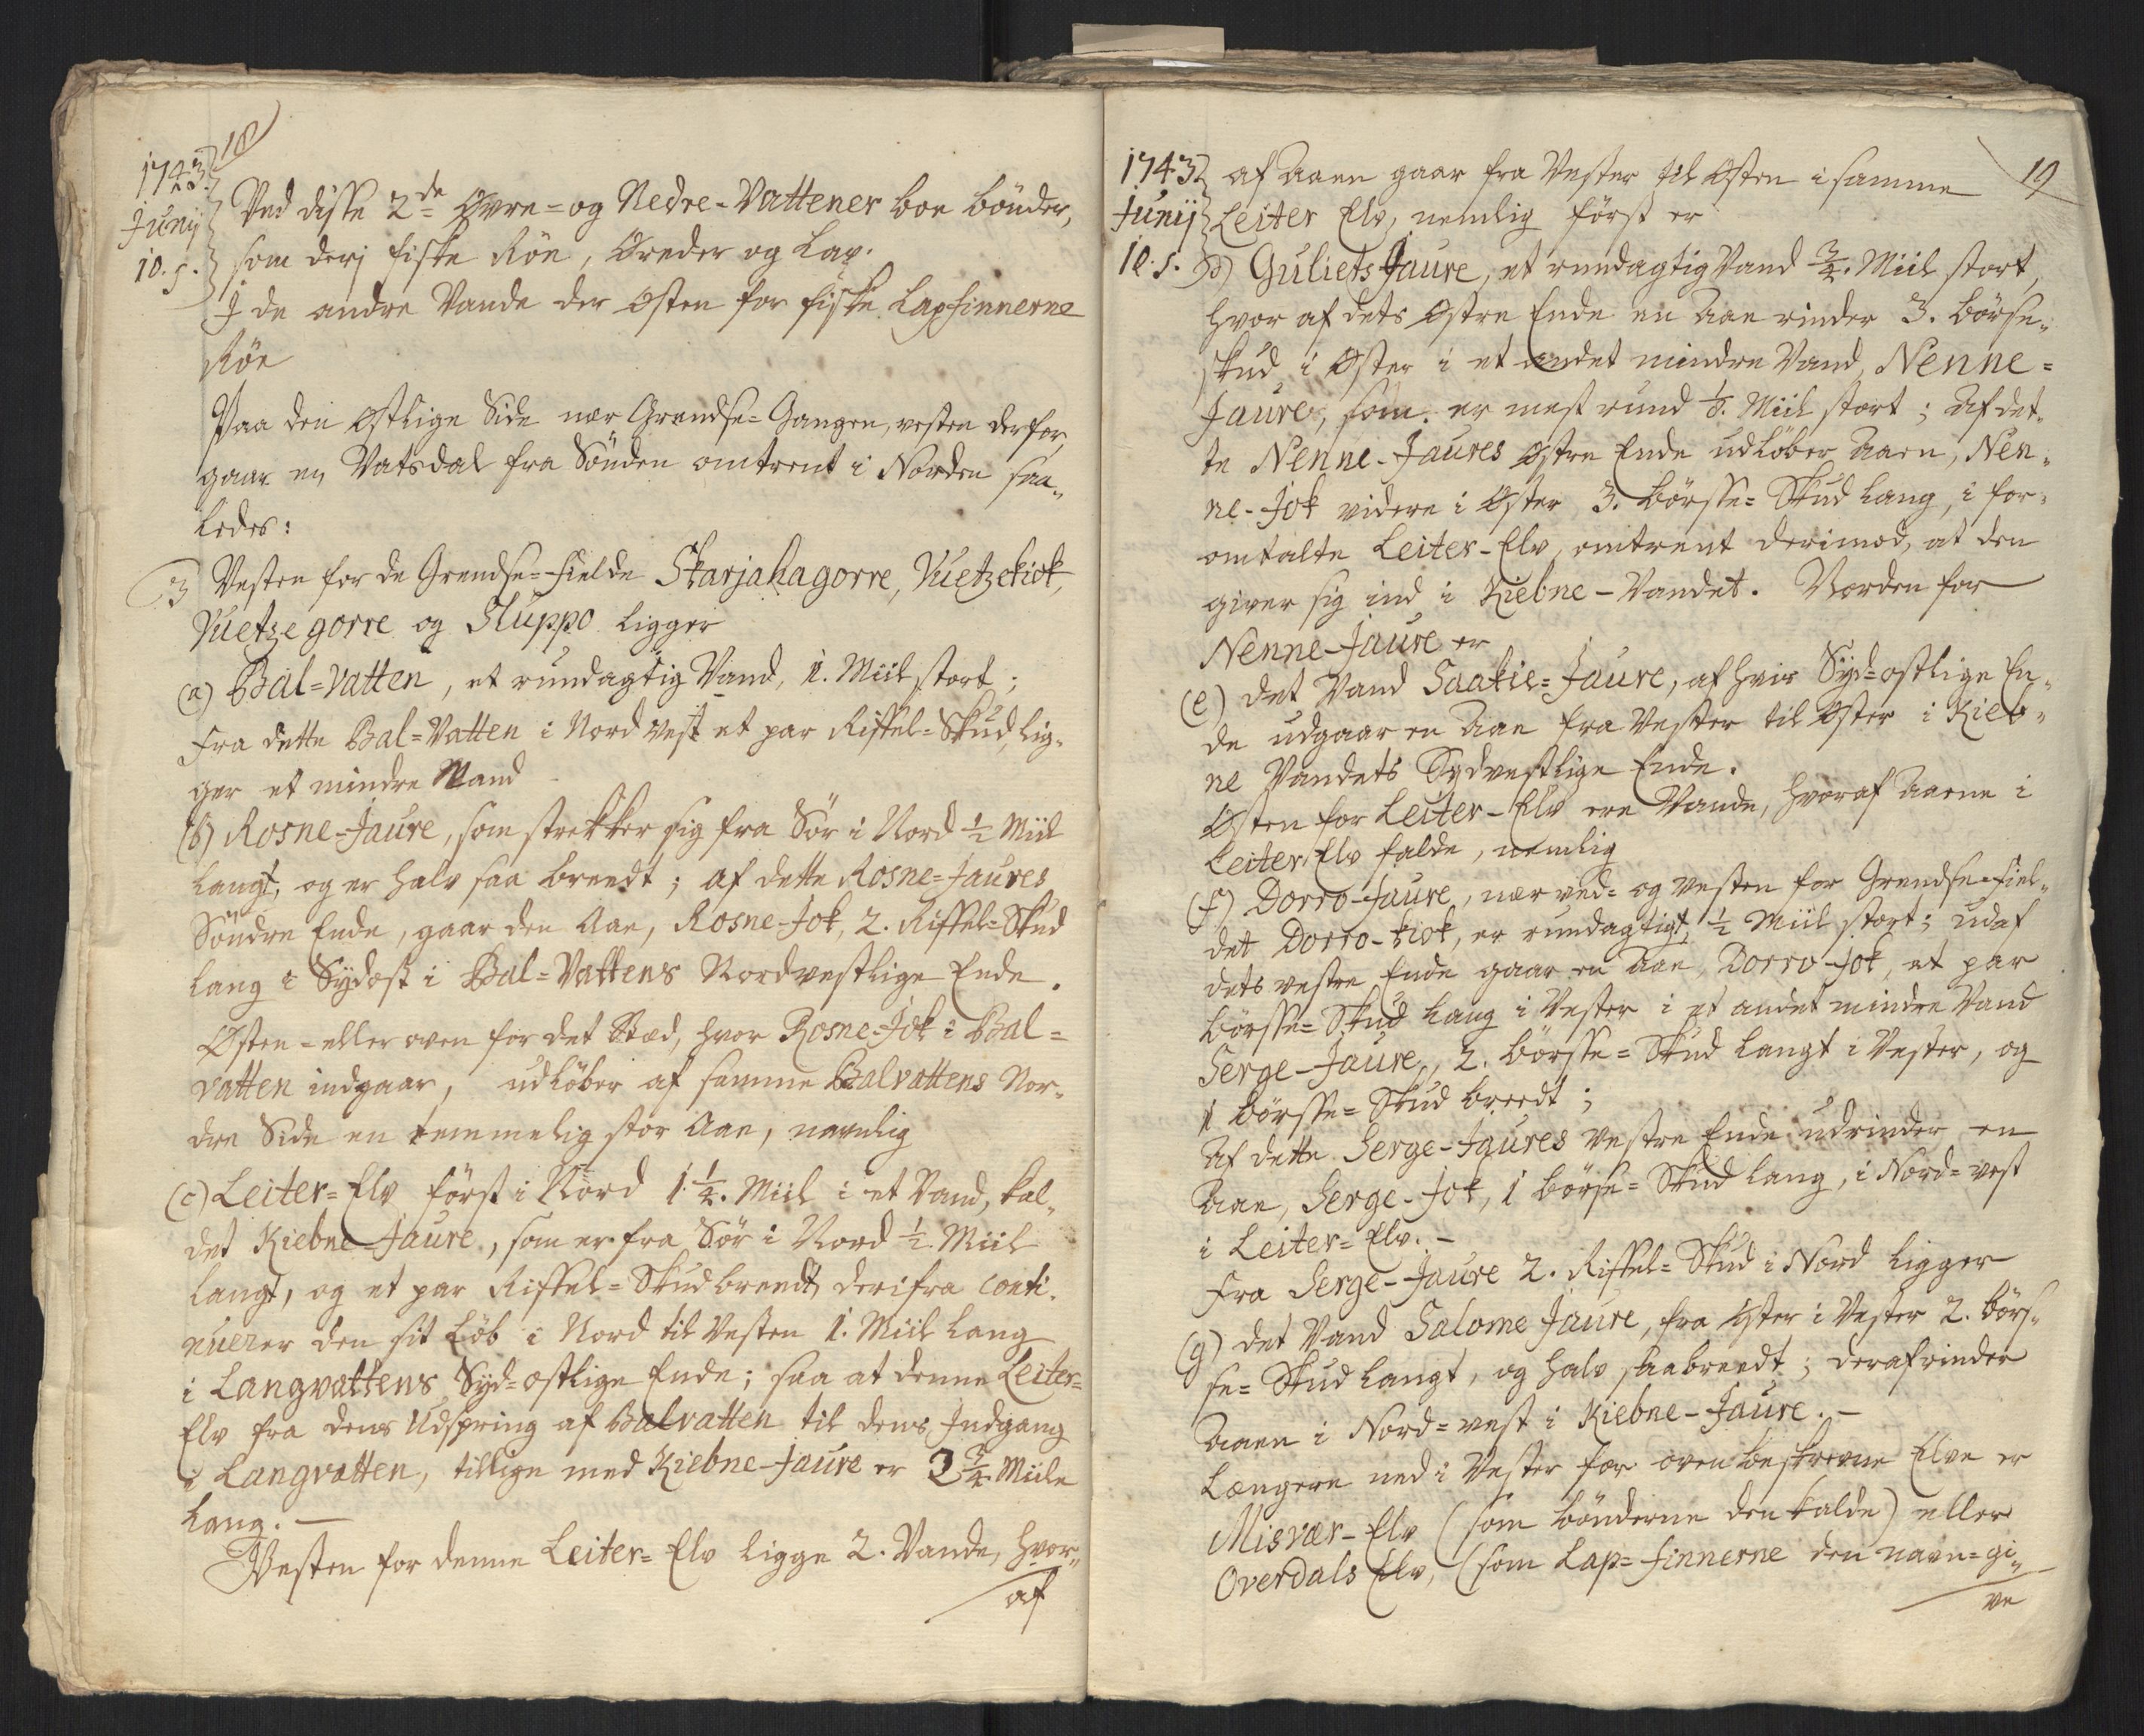 18
1743.
Junij
10. s.
Ved disse 2de Øvre= og Nedre-Vattener boe bönder,
som derj fiske Röe, Öreder og Lax.
J de andre Vande der Østen for fiske Lapfinnerne
Röe
Paa den Østlige Side nær Grendse=Gangen, vesten derfor,
gaar en Vatsdal fra Sönden omtrent i Norden saa„
ledes:
3 Vesten for de Grendse=Fielde Skarjahagorre, Vuetzekiok,
Vuetzegorre og Sluppo ligger
(a) Bal=Vatten, et rundagtig Vand, 1. Miil stort;
Fra dette Bal=Vatten i Nord vest et par Riffel=Skud, lig„
ger et mindre Vand
(b) Rosne-Jaure, som strekker sig fra Sör i Nord ½ Miil
langt, og er halv saa breedt; af dette Rosne=Jaures
Söndre Ende, gaar den Aae, Rosne-Jok, 2. Riffel=Skud
lang i Sydost i Bal=Vattens Nordvestlige Ende.
Østen = eller oven for det Stæd, hvor Rosne-Jok i Bal=
vatten indgaar, udlöber af samme Balvattens Nor„
dre Side en temmelig stor Aae, navnlig
(c) Leiter=Elv först i Nord 1¼. Miil i et Vand, kal„
det Kiebne-Jaure, som er fra Sör i Nord ½ Miil
langt, og et par Riffel=Skud breedt, derifra conti„
nuerer den sit Löb i Nord til Vesten 1. Miil lang
i Langvattens Syd=ostlige Ende; saa at denne Leiter=
Elv fra dens Udspring af Balvatten til dens Indgang
i Langvatten, tillige med Kiebne-Jaure er 2¾ Miile
lang. —
Vesten for denne Leiter=Elv ligge 2. Vande, hvor„
af
19
1743
Junij
10. s.
af Aaen gaar fra Vester til Østen i samme
Leiter Elv, nemlig först er
(d) Guliets Jaure, et rundagtig Vand ¾. Miil stort,
hvor af dets Østre Ende en Aae rinder 3. börse„
skud i Øster i et andet mindre Vand, Nenne=
Jaure, som er mest rund ⅛. Miil stort; Af det„
te Nenne-Jaures Østre Ende udlöber Aaen, Nen„
ne-Jok videre i Øster 3. börsse=Skud lang, i for„
omtalte Leiter-Elv, omtrent derimod, at den
giver sig ind i Kiebne-Vandet. Norden for
Nenne-Jaure er
(e) det Vand Saakie=Jaure, af hvis Syd=ostlige En„
de udgaar en Aae fra Vester til Øster i Kieb„
ne Vandets Sydvestlige Ende.
Østen for Leiter-Elv ere Vande, hvoraf Aaerne i
Leiter Elv falde, nemlig
(f) Dorro-Jaure, nær ved= og vesten for Grendse=Fiel„
det Dorro-kiok, er rundagtigt, ½ Miil stort; udaf
dets vestre Ende gaar en Aae, Dorro-Jok, et par
börsse=Skud lang i Vester i et andet mindre Vand
Serge-Jaure, 2. börsse=Skud langt i Vester, og
1 börsse=Skud breedt;
Af dette Serge-Jaures Vestre Ende udrinder en
Aae, Serge-Jok, 1 börse=Skud lang, i Nord=vest
i Leiter=Elv. —
Fra Serge-Jaure 2. Riffel=Skud i Nord ligger
(g) det Vand Salome Jaure, fra Øster i Vester 2. börs„
se=Skud langt, og halv saa breedt; deraf rinder
Aaen i Nord=vest i Kiebne-Jaure. —
Længere ned i Vester for oven beskrevne Elve er
Misvær-Elv (som bönderne den kalde) eller
Overdals Elv, (som Lap=finnerne den navn=gi„
ve